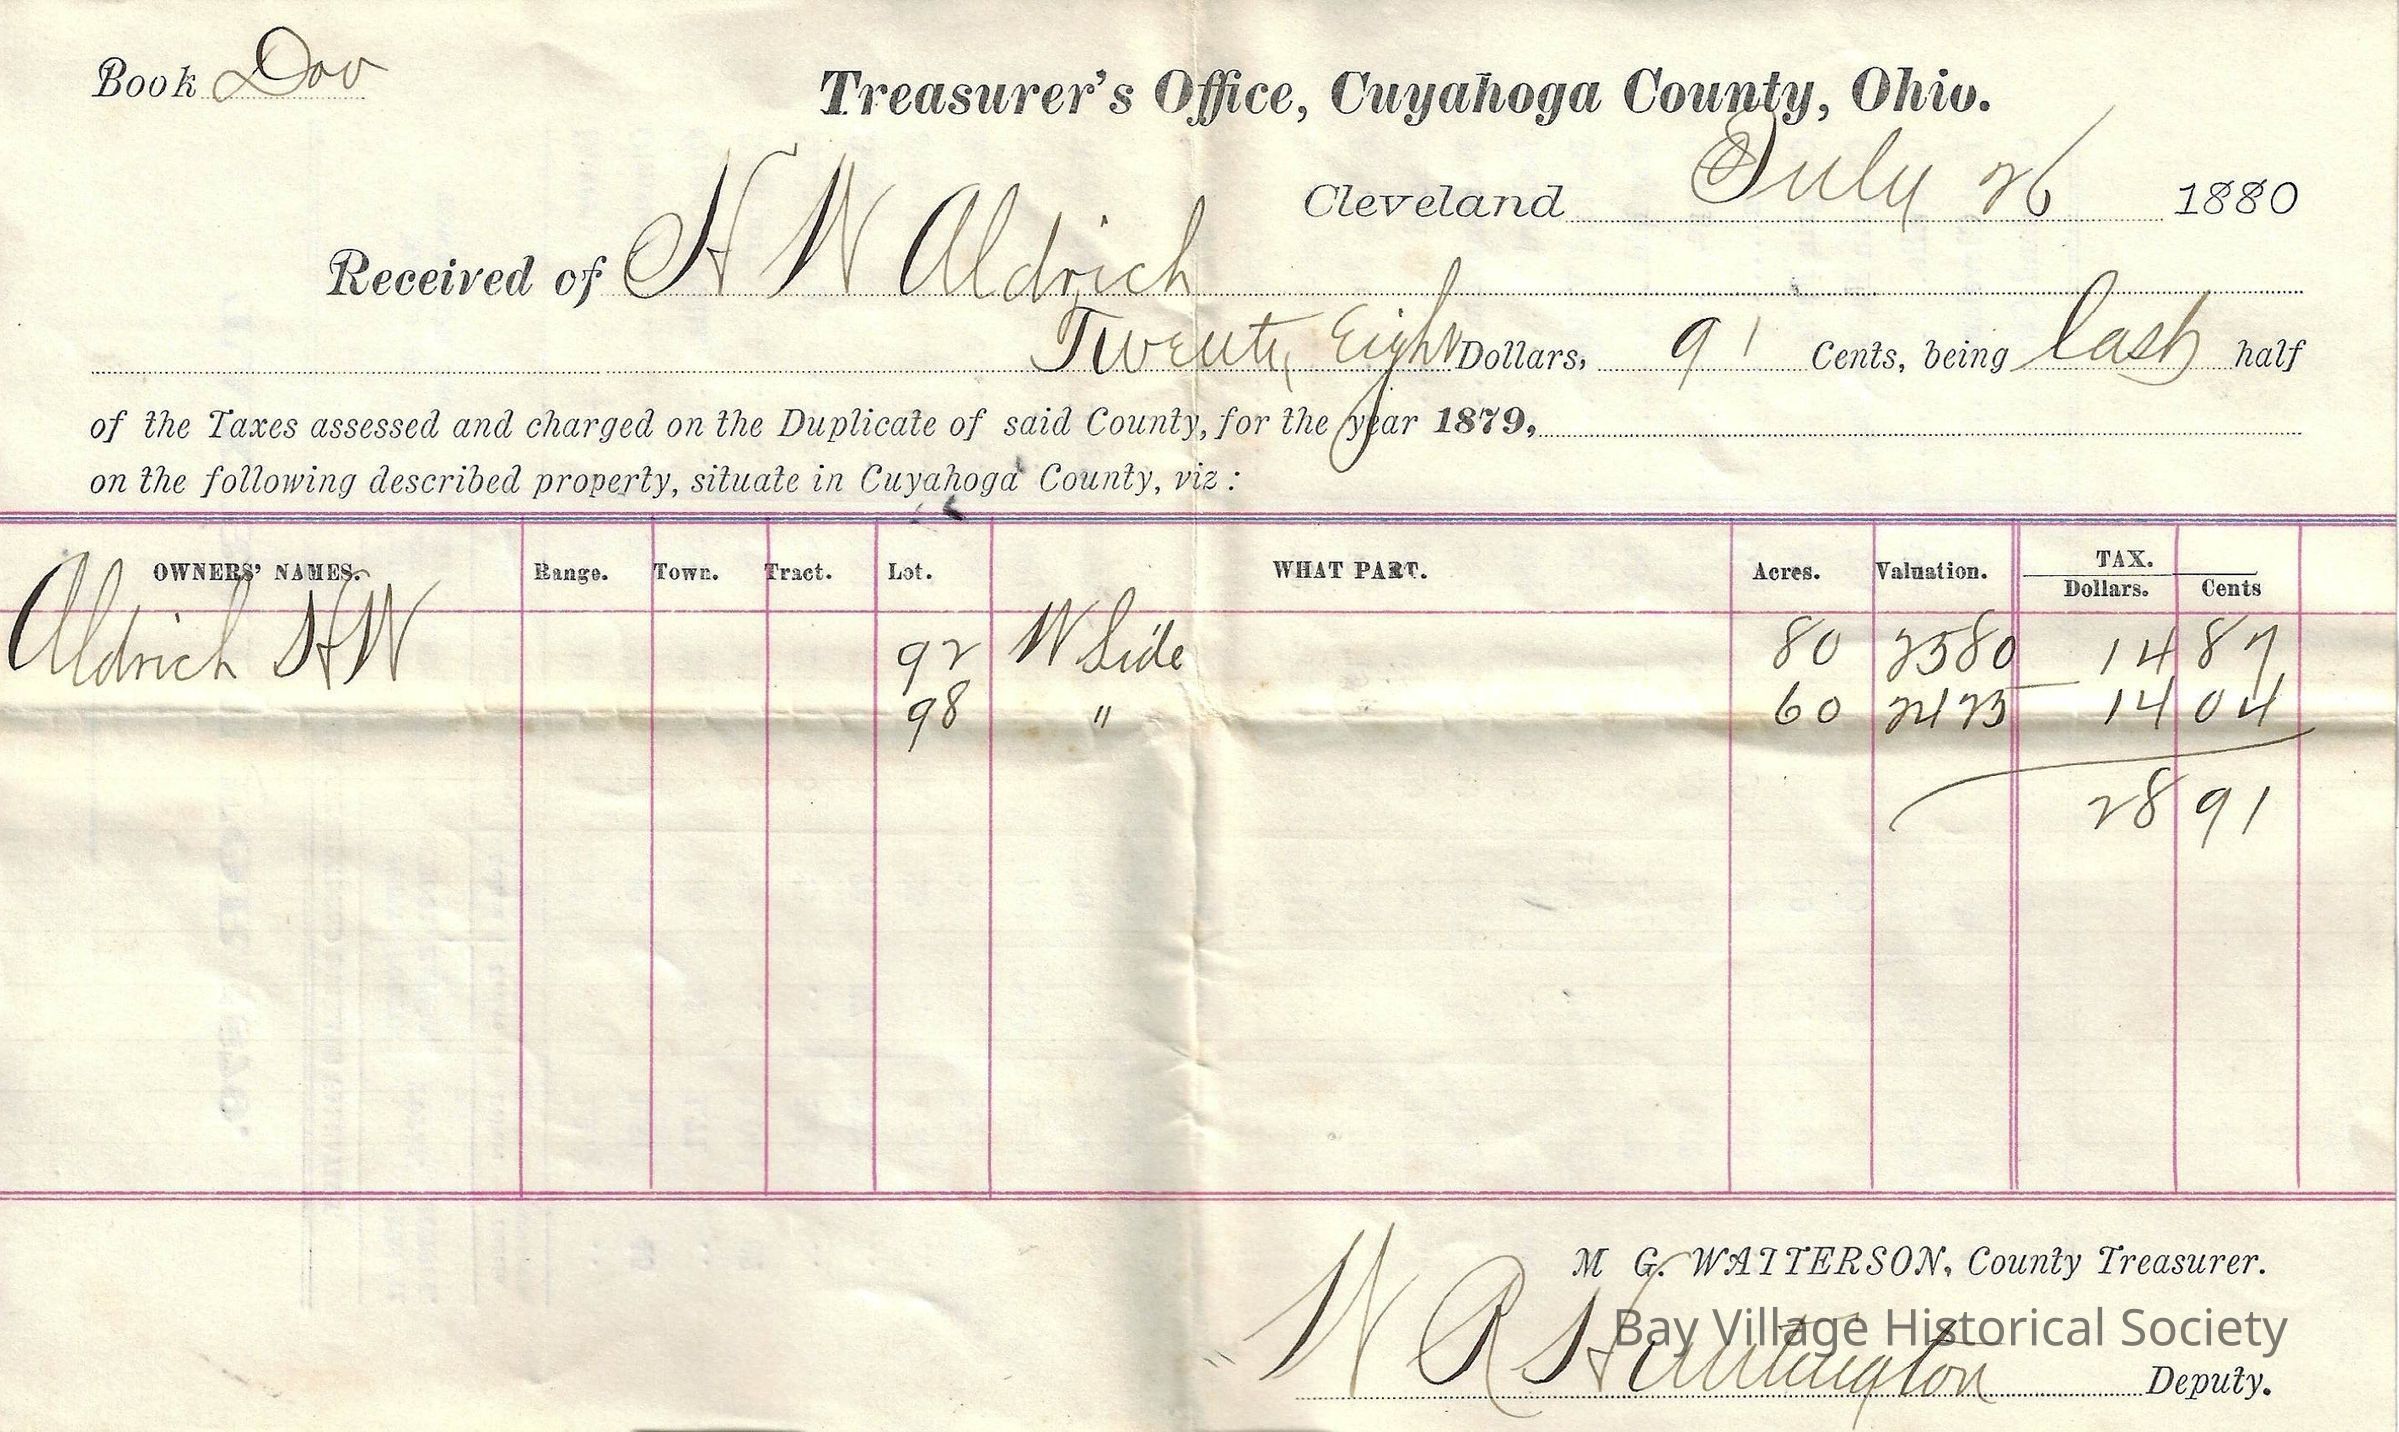 Book Dov
Treasurer's Office, Cuyahoga County, Ohio.
Cleveland July 26 1880
Received of H W Aldrich
Twenty Eight Dollars, 91 Cents, being last half
of the Taxes assessed and charged on the Duplicate of said County, for the year 1879,
on the following described property, situate in Cuyahoga County, viz :
OWNERS' NAMES. Range. Town. Tract. Lot. WHAT PART. Acres. Valuation. TAX.
Dollars. Cents
Aldrich H W 92 W Side 80 2580 14 87
98 " 60 2425 14 04
28 91
M G. WATTERSON, County Treasurer.
Bay Village Historical Society
W R Huntington Deputy.